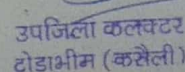 उपजिला कलक्टर
टोडाभीम (कसैली)